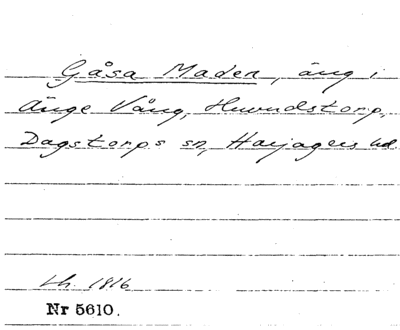 Gåsa Maden, äng i
Änge Vång, Huvudstorp,
Dagstorps sn, Harjagers hd.
Lh. 1816
Nr 5610.